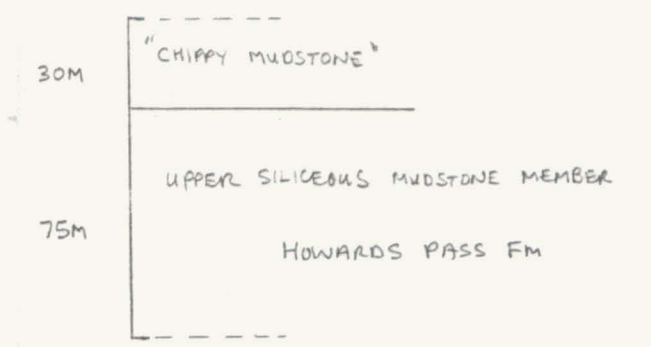 "CHIPPY MUDSTONE"
30M
UPPER SILICEOUS MUDSTONE MEMBER
75M
HOWARDS PASS FM